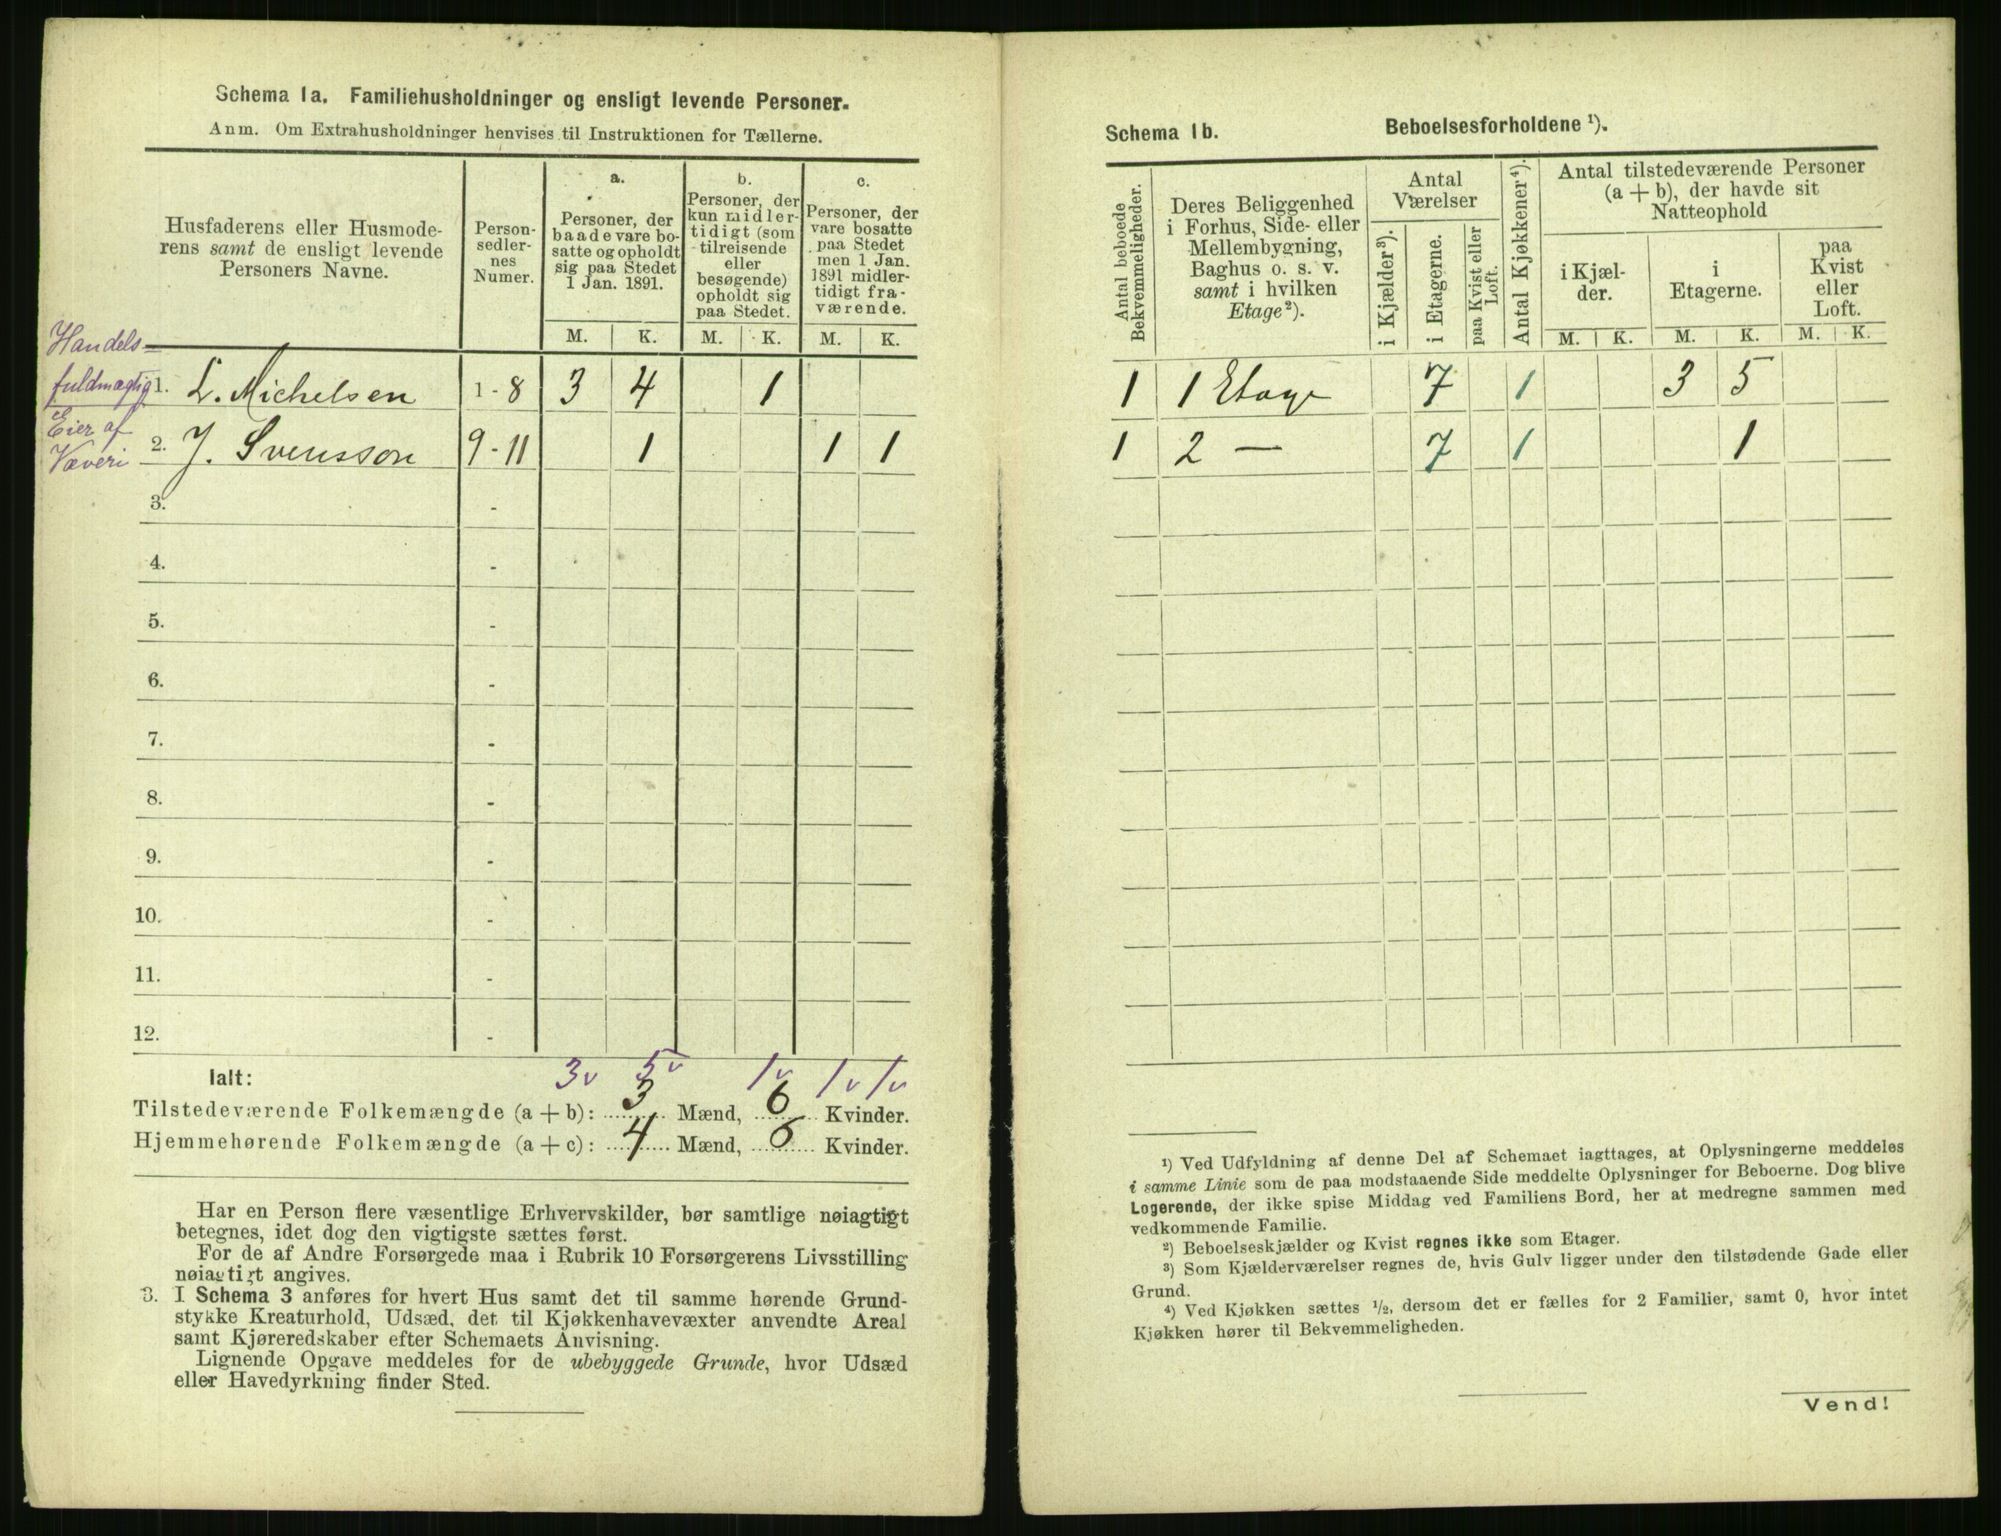 Schema 1a. Familiehusholdninger og ensligt levende Personer.
Anm. Om Extrahusholdninger henvises til Instruktionen for Tællerne.
Husfaderens eller Husmoderens samt de ensligt levende Personers Navne.
Person-sedler-nes Numer.
a.
Personer, der baade vare bosatte og opholdt sig paa Stedet 1 Jan. 1891.
b.
Personer, der kun midlertidigt (som tilreisende eller besøgende) opholdt sig paa Stedet.
c.
Personer, der vare bosatte paa Stedet men 1 Jan. 1891 midlertidigt fraværende.
M. K. M. K. M. K.
Handels-
fuldmægtig 1. L. Michelsen 1-8 3 4 1
Eier af
Væveri 2. J. Svensson 9-11 1 1 1
3. -
4. -
5. -
6. -
7. -
8. -
9. -
10. -
11. -
12. -
3v 5v 1v 1v 1v
Ialt:
Tilstedeværende Folkemængde (a + b): 3 Mænd, 6 Kvinder.
Hjemmehørende Folkemængde (a + c): 4 Mænd, 6 Kvinder.
Har en Person flere væsentlige Erhvervskilder, bør samtlige nøiagtigt
betegnes, idet dog den vigtigste sættes først.
For de af Andre Forsørgede maa i Rubrik 10 Forsørgerens Livsstilling
nøiagtigt angives.
3. I Schema 3 anføres for hvert Hus samt det til samme hørende Grund-
stykke Kreaturhold, Udsæd, det til Kjøkkenhavevæxter anvendte Areal
samt Kjøreredskaber efter Schemaets Anvisning.
Lignende Opgave meddeles for de ubebyggede Grunde, hvor Udsæd
eller Havedyrkning finder Sted.
Schema 1b. Beboelsesforholdene ¹).
Antal beboede Bekvemmeligheder.
Deres Beliggenhed i Forhus, Side- eller Mellembygning, Baghus o. s. v. samt i hvilken Etage ²).
Antal Værelser
i Kjælder ³).
i Etagerne.
paa Kvist eller Loft.
Antal Kjøkkener ⁴).
Antal tilstedeværende Personer (a + b), der havde sit Natteophold
i Kjælder.
i Etagerne.
paa Kvist eller Loft.
M. K. M. K. M. K.
1 1 Etage 7 1 3 5
1 2 — 7 1 1
¹) Ved Udfyldning af denne Del af Schemaet iagttages, at Oplysningerne meddeles
i samme Linie som de paa modstaaende Side meddelte Oplysninger for Beboerne. Dog blive
Logerende, der ikke spise Middag ved Familiens Bord, her at medregne sammen med
vedkommende Familie.
²) Beboelseskjælder og Kvist regnes ikke som Etager.
³) Som Kjælderværelser regnes de, hvis Gulv ligger under den tilstødende Gade eller
Grund.
⁴) Ved Kjøkken sættes ½, dersom det er fælles for 2 Familier, samt 0, hvor intet
Kjøkken hører til Bekvemmeligheden.
Vend!